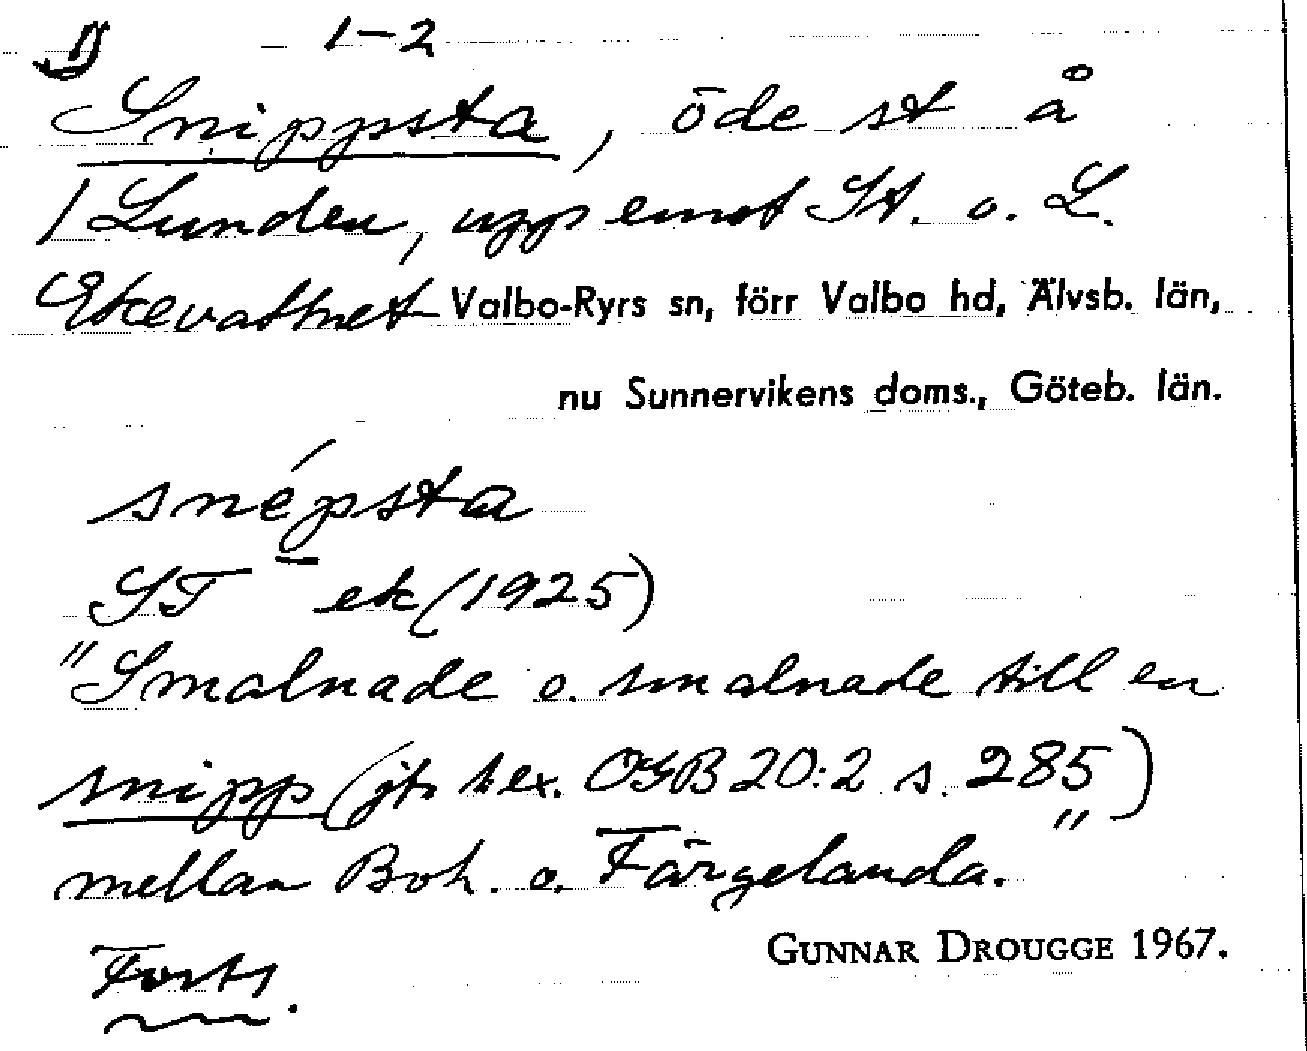 1) 1–2
Snippsta, öde st å
/ Lunden, upp emot St. o. L.
Ekevattnet Valbo-Ryrs sn, förr Valbo hd, Älvsb. län,
nu Sunnervikens doms., Göteb. län.
snépsta
ST ek (1925)
"Smalnade o. smalnade till en
snipp (jfr t ex. OGB 20:2 s. 285)
mellan Boh. o. Färgelanda."
GUNNAR DROUGGE 1967.
Forts.